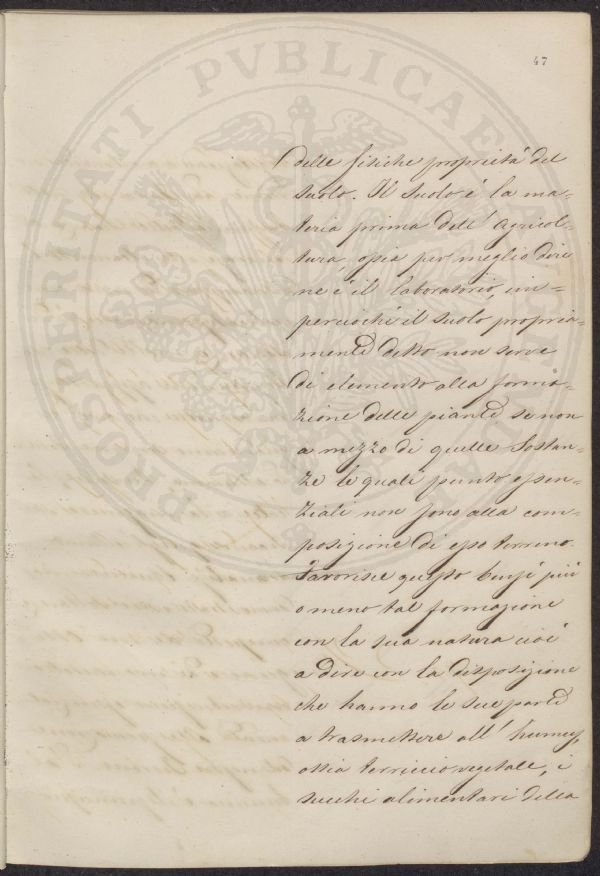 47
delle fisiche proprietá del
suolo. Il suolo é la ma=
teria prima dell' agricol=
tura, ossia per meglio dire
ne é il laboratorio, im=
perciochè il suolo propria=
mente detto non serve
di elemento alla forma=
zione delle piante se non
a mezzo di quelle Sostan=
ze le quali punto essen=
ziali non sono alla com=
posizione di esso terreno.
Favorisce questo bensí più
o meno tal formazione
con la sua natura cioé
a dire con la disposizione
che hanno le sue parti
a trasmettere all' humus,
ossia terriccio vegetale, i
succhi alimentari della
PROSPERITATI PVBLICAE